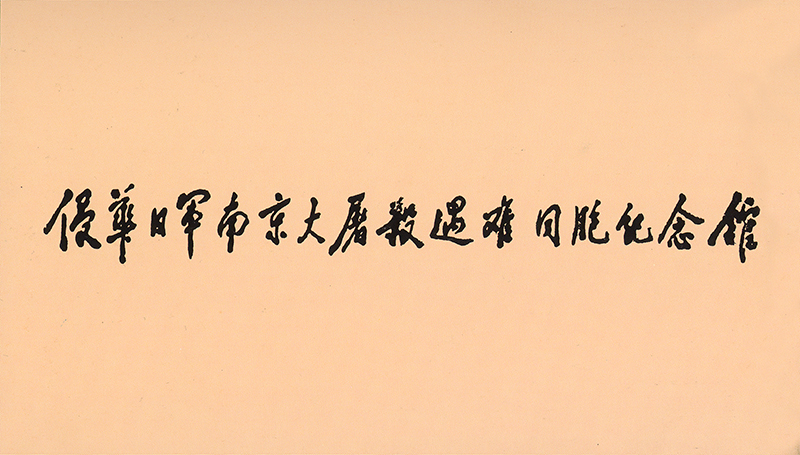 侵華日軍南京大屠殺遇难同胞纪念館